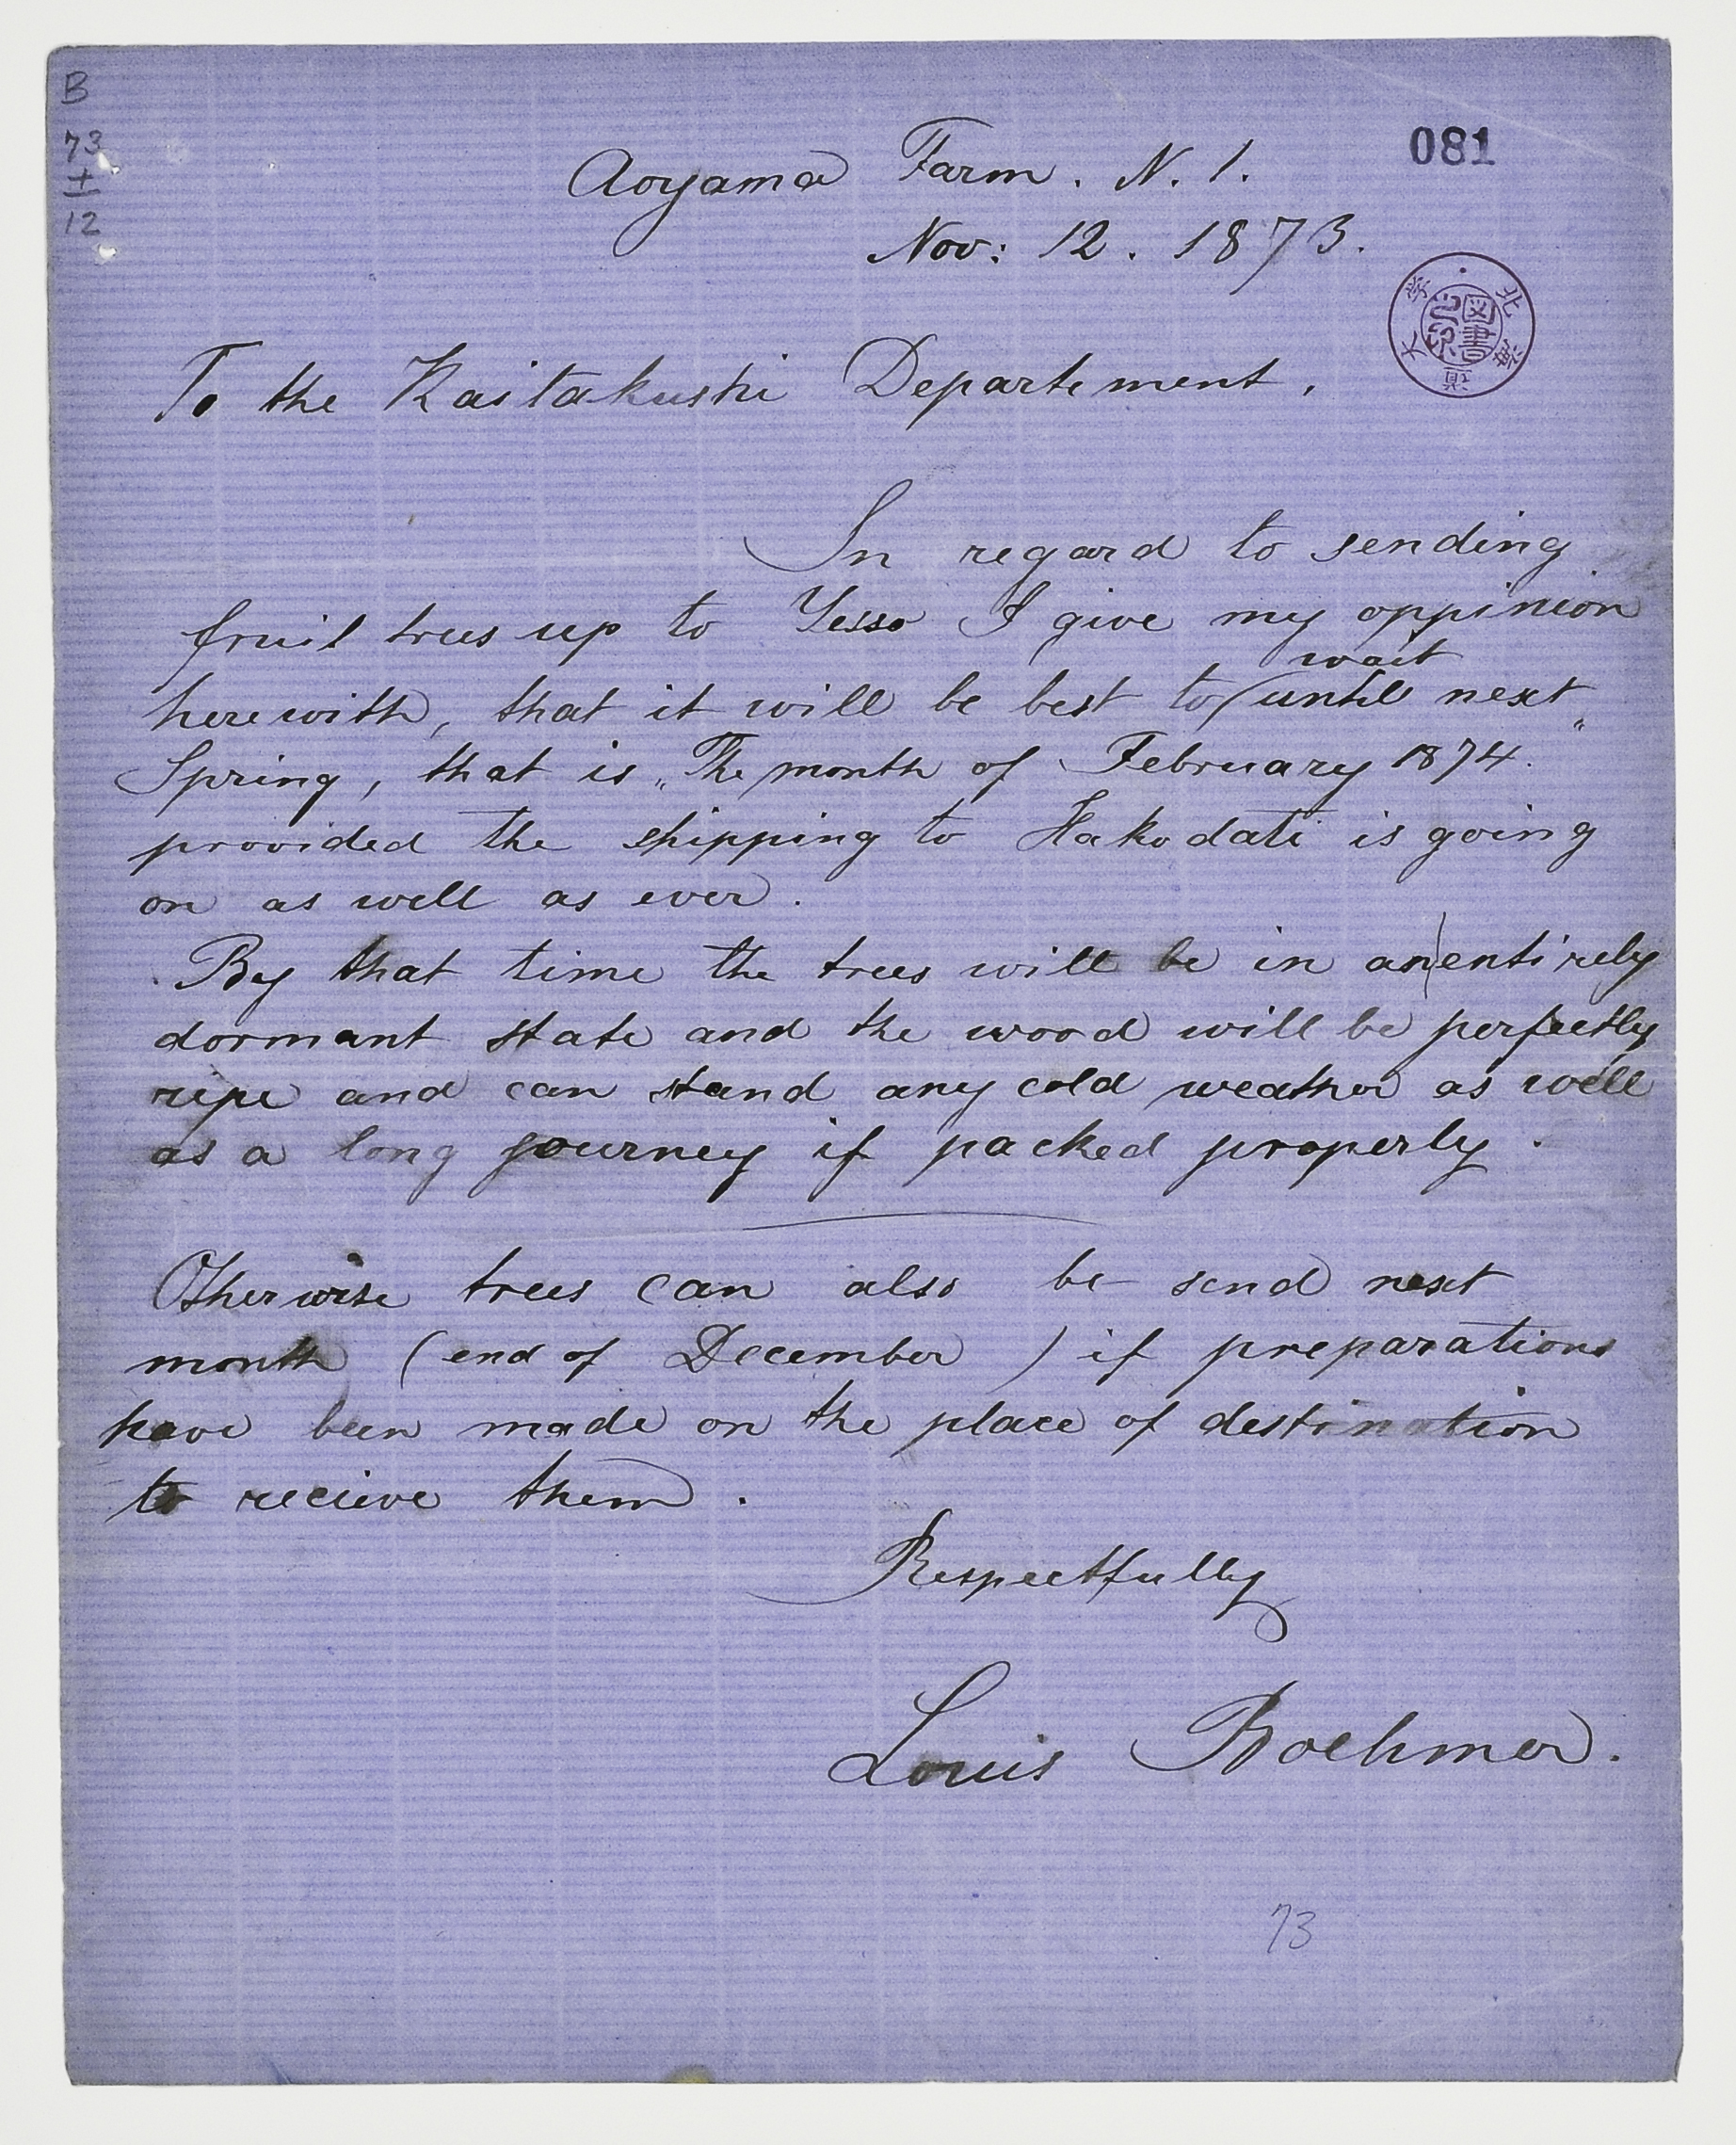 B
73
+
12
081
Aoyama Farm. N. 1.
Nov: 12. 1873.
北海道大学
図書
To the Kaitakushi Departement,
In regard to sending
fruit trees up to Yesso I give my oppinion
wait
herewith, that it will be best to (until next
Spring, that is „The month of February 1874."
provided the shipping to Hakodati is going
on as well as ever.
By that time the trees will be in an entirely
dormant state and the wood will be perfectly
ripe and can stand any cold weather as well
as a long journey if packed properly.
Otherwise trees can also be send next
month (end of December) if preparations
have been made on the place of destination
to recieve them.
Respectfully
Louis Boehmer.
73